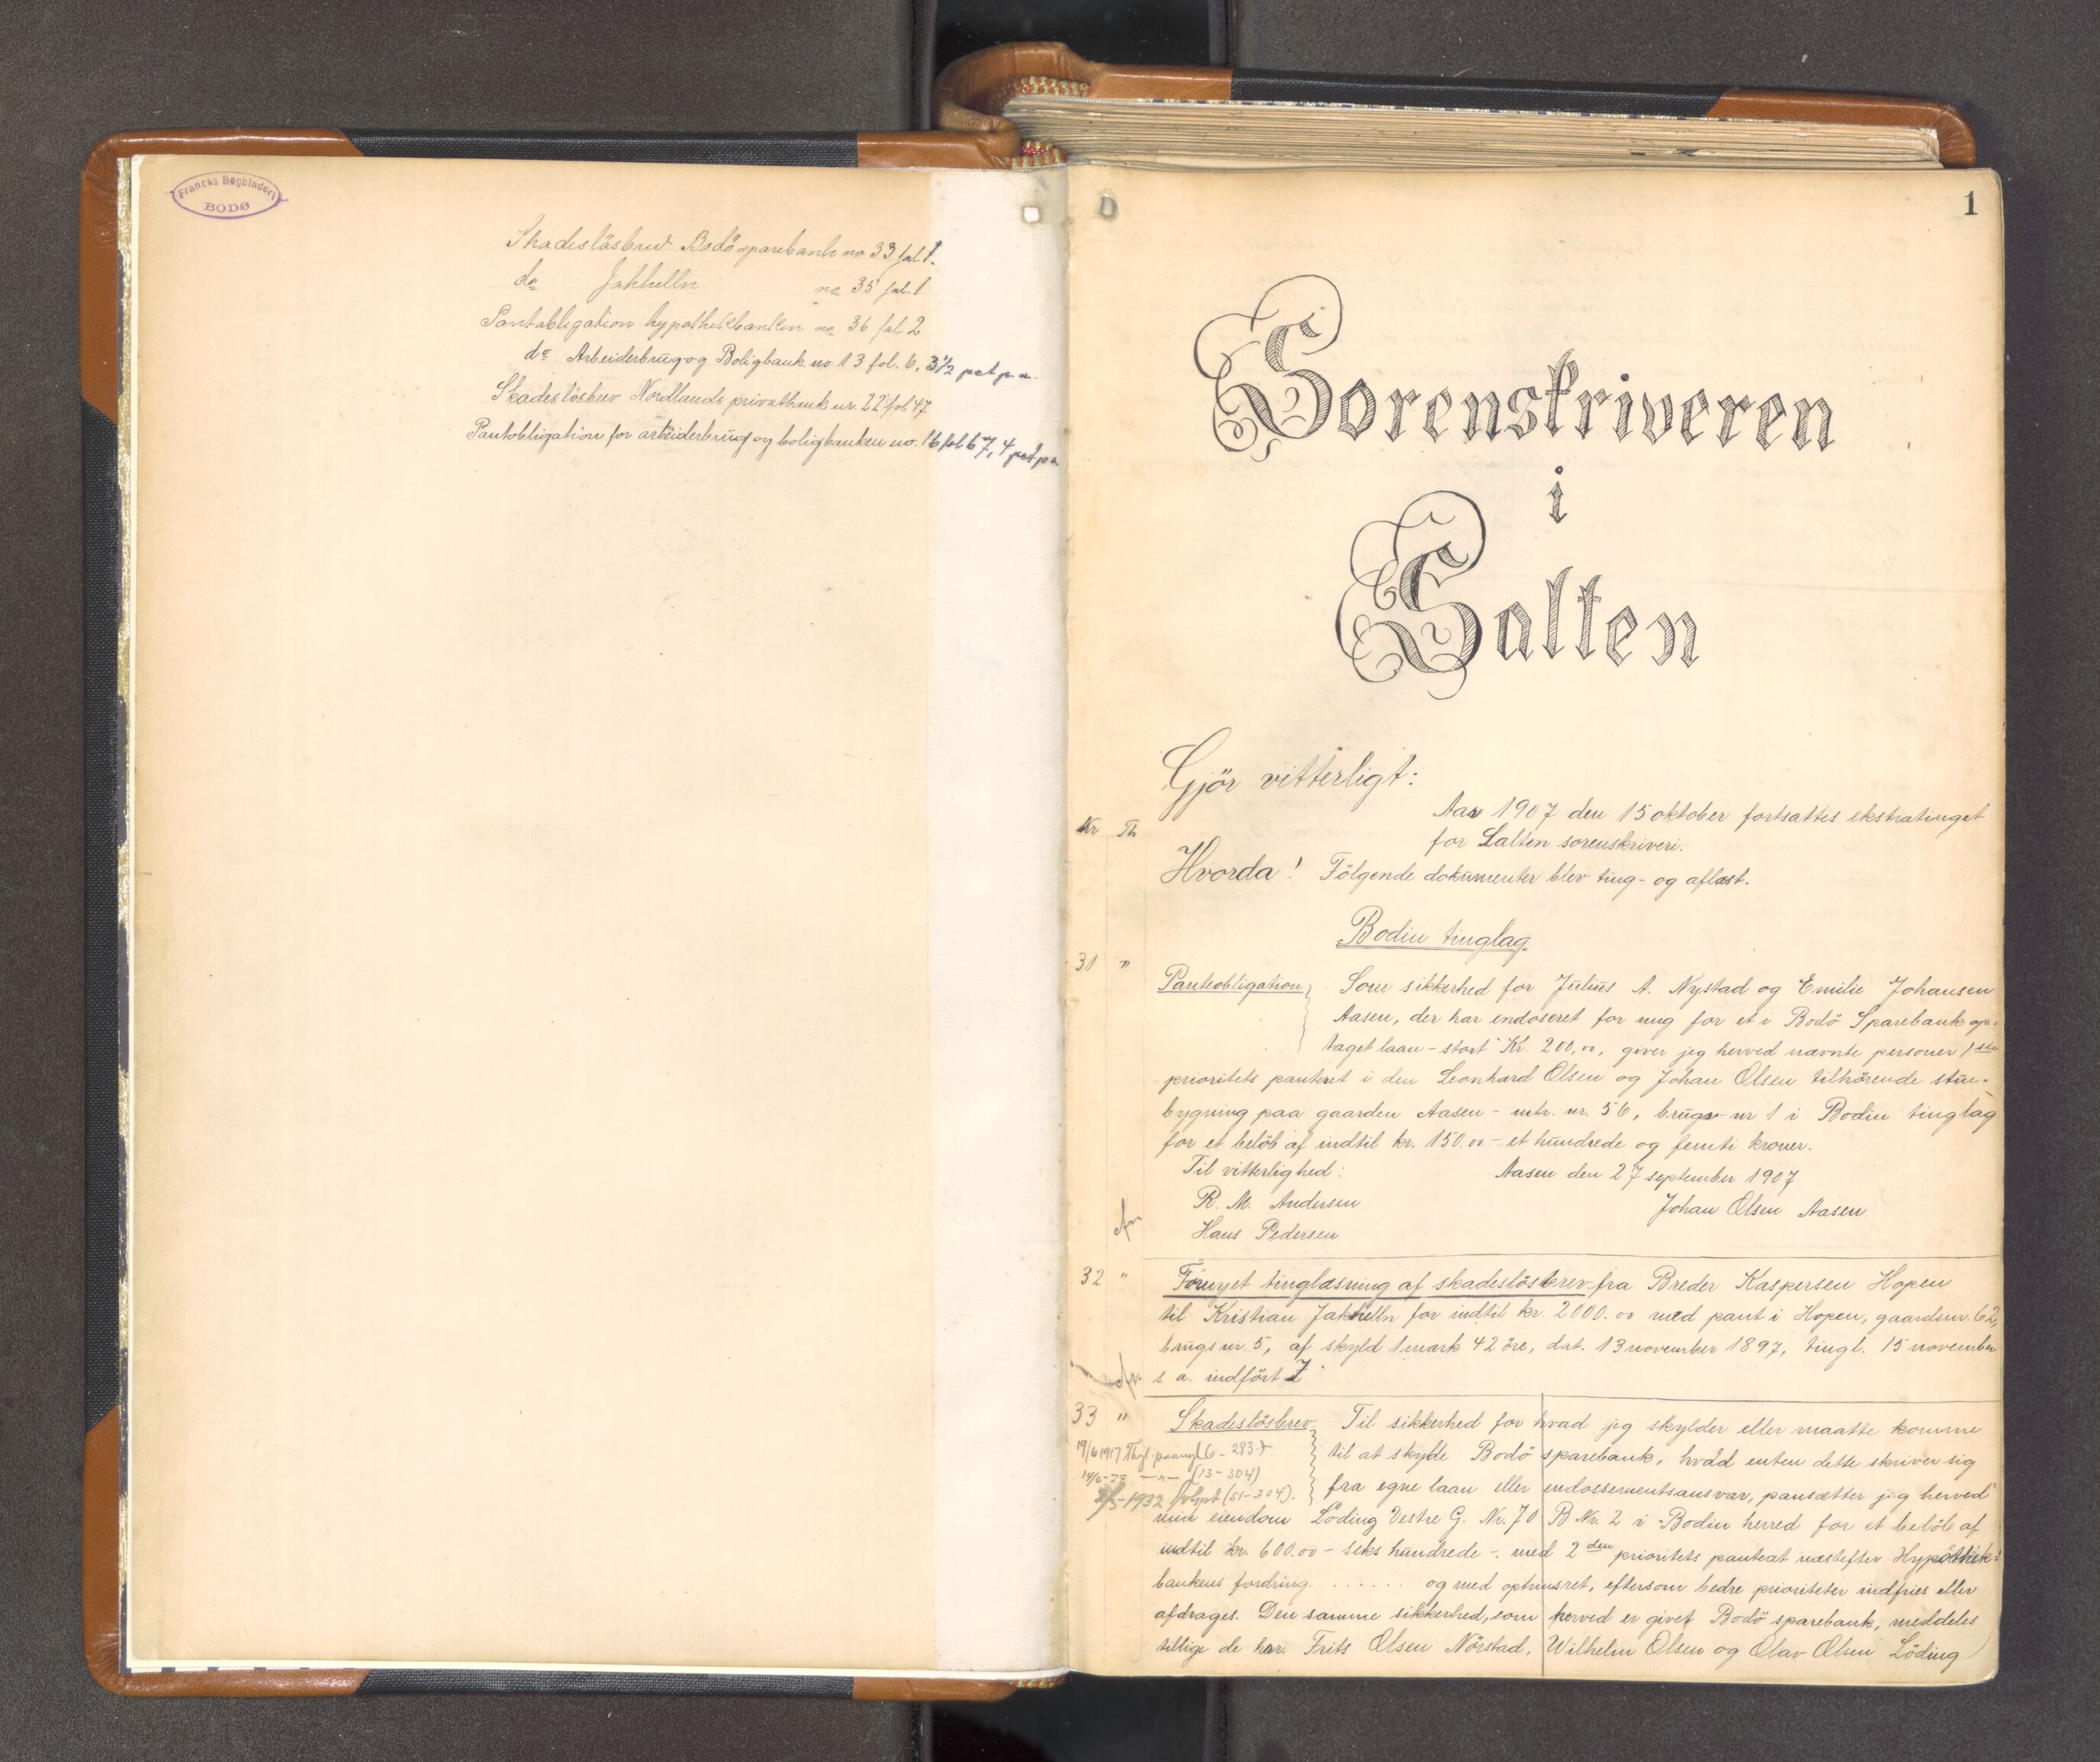 Francks Bogbinderi
BODØ
Skadeslösbrev Bodö sparebank no 33 fol. 1.
do Jakhelln no 35 fol. 1
Pantobligation hypothekbanken no 36 fol. 2
do Arbeiderbrug og Boligbank no 13 fol. 6, 3½ pct p. a.
Skadeslösbrev Nordlands privatbank nr. 22 fol 47
Pantobligation for arbeiderbrug og boligbanken no. 16 fol 67, 4 pct p a
1
Sorenskriveren
i
Salten
Gjör vitterligt:
Aar 1907 den 15 oktober fortsattes ekstratinget
Kr Th
for Salten sorenskriveri.
Hvorda! Fölgende dokumenter blev ting- og aflæst.
Bodin tinglag.
31 "
Panteobligation Som sikkerhed for Julius A. Nystad og Emilie Johansen
Aasen, der har endoseret for mig for et i Bodö Sparebank op-
taget laan - stort Kr. 200,00, giver jeg herved nævnte personer 1ste
prioritets panteret i den Leonhard Olsen og Johan Olsen tilhörende stue-
bygning paa gaarden Aasen - mtr. nr. 56, brugs nr 1 i Bodin tinglag
for et belöb af indtil kr. 150.00 - et hundrede og femti kroner.
Til vitterlighed: Aasen den 27 september 1907
R. M. Andersen Johan Olsen Aasen
Hans Pedersen
32 " Fornyet tinglæsning af skadeslösbrev fra Breder Kaspersen Hopen
til Kristian Jakhelln for indtil kr. 2000.00 med pant i Hopen, gaardsnr. 62,
brugsnr. 5, af skyld 1 mark 42 öre, dat. 13 november 1897, tingl. 15 november
s. a. indfört
33 " Skadeslösbrev. Til sikkerhed for hvad jeg skylder eller maatte komme
19/6 1917 283
til at skylde Bodö sparebank, hvad enten dette skriver sig
(13-304)
fra egne laan eller endossementsansvar, pansætter jeg herved
1932 (51-204).
min eiendom Löding Vestre G. Nr. 70 B Nr. 2 i Bodin herred for et belöb af
indtil kr. 600.00 - seks hundrede -. med 2den prioritets panteret næstefter Hypothek-
bankens fordring ....... og med oprinsret, eftersom bedre prioriteter indfries eller
afdrages. Den samme sikkerhed, som herved er givet Bodö sparebank, meddeles
tillige de hrr. Frits Olsen Nörstad, Wilhelm Olsen og Olav Olsen Löding